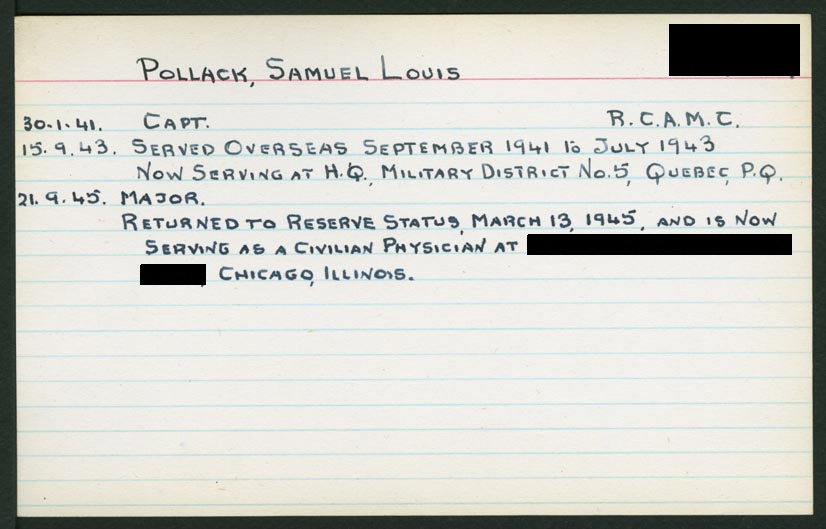 POLLACK, SAMUEL LOUIS
30.1.41. CAPT. R.C.A.M.C.
15.9.43. SERVED OVERSEAS SEPTEMBER 1941 to JULY 1943
NOW SERVING AT H.Q., MILITARY DISTRICT No.5, QUEBEC, P.Q.
21.9.45. MAJOR.
RETURNED TO RESERVE STATUS, MARCH 13, 1945, AND IS NOW
SERVING AS A CIVILIAN PHYSICIAN AT
, CHICAGO, ILLINOIS.